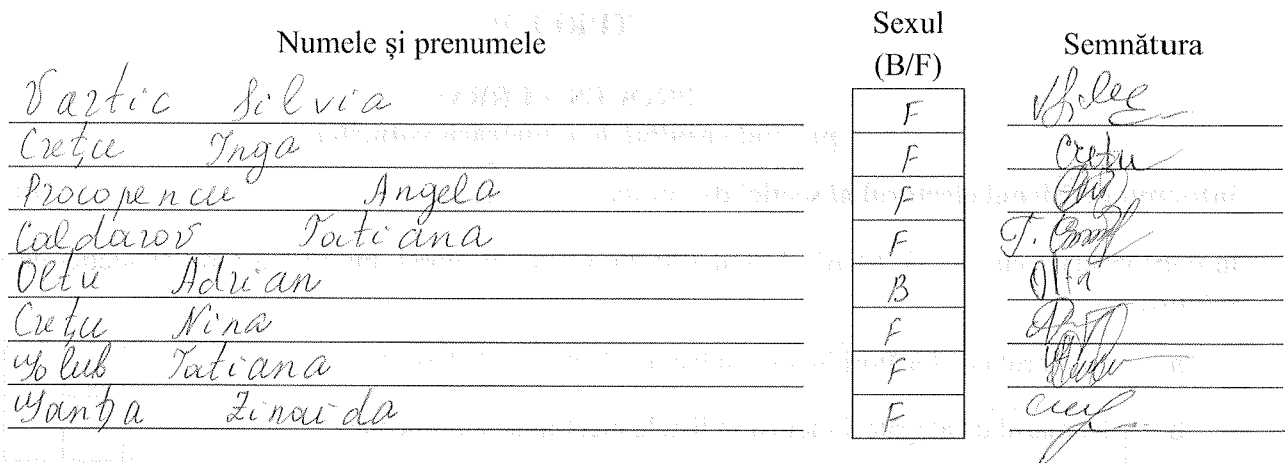 Numele și prenumele Sexul (B/F) Semnătura
Vartic Silvia F
Crețu Inga F Crețu
Procopencu Angela F
Caldarov Tatiana F T.
Oltu Adrian B
Crețu Nina F
Golub Tatiana F
Ganța Zinaida F